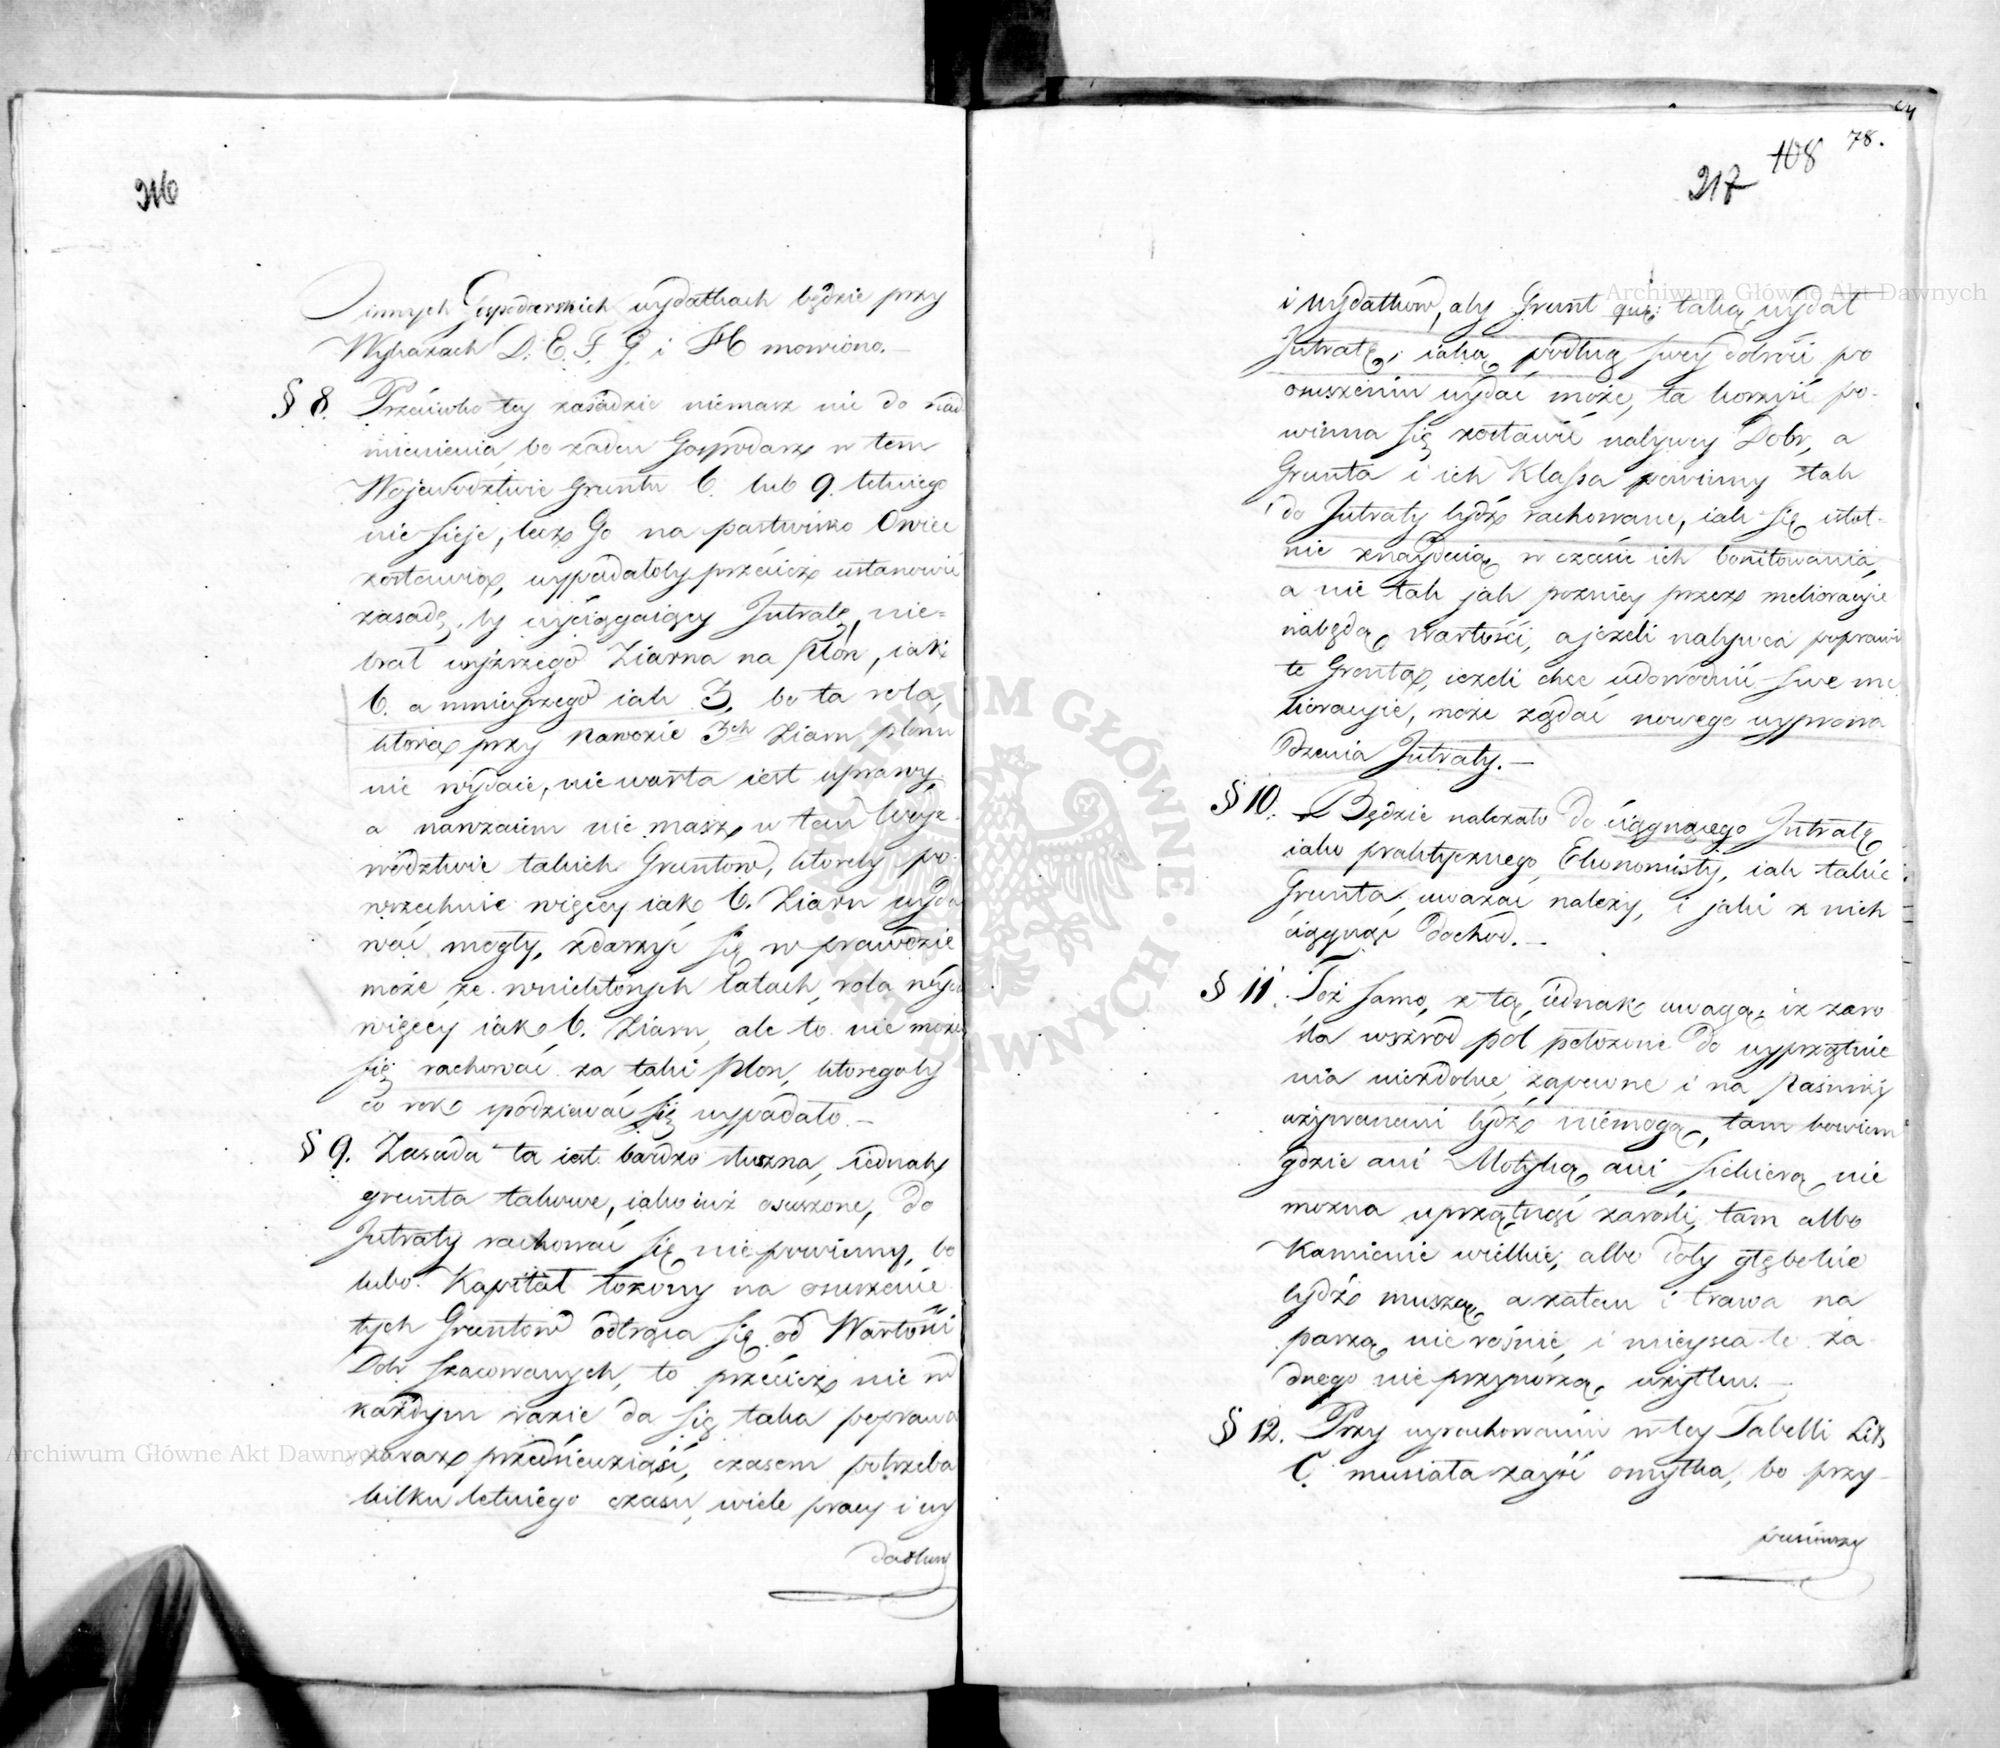 216
O innych Gospodarskich wydatkach będzie przy
Wykazach D. E. F. G. i H mowiono.—
§ 8. Przeciwko tey zasadzie niemasz nic do nad
mienienia, bo żaden Gospodarz w tem
Wojewodztwie Gruntu 6. lub 9. letniego
nie sieje, lecz Go na pastwisko Owiec
zostawia, wypadałoby przecież ustanowić
zasadę, by wyciągaiący Intratę, nie=
brał wyższego Ziarna na plon, iak
6. a mnieyszego iak 3. bo ta rola,
ktora przy Nawozie 3ch Ziarn plonu
nie wydaie, nie warta iest uprawy,
a nawzaiem nie masz w tem Woje-
wodztwie takich Gruntow, ktoreby po-
wszechnie więcey iak 6. Ziarn wyda
wać mogły, zdarzyć się w prawdzie
może że w niektorych latach, rola wyda
więcey iak 6. Ziarn, ale to nie może
się rachować za taki plon, ktoregoby
co rok spodziewać się wypadało.—
§ 9. Zasada ta iest bardzo słuszna, iednak
grunta takowe, iako iuż osuszone, do
Intraty rachować się nie powinny, bo
lubo Kapitał łożony na osuszenie
tych Gruntow odtrąca się od Wartości
Dobr szacowanych, to przecież nie w
każdym razie da się taka poprawa
zaraz przedsiewziąść, czasem potrzeba
kilku letniego czasu, wiele pracy i wy
datkow
78.
108
217
i wydatkow, aby Grunt taką wydał
Intratę, iaką podług swey dobroci po
osuszeniu wydać może, ta korzyść po-
winna się zostawić nabywcy Dobr, a
Grunta i ich Klassa powinny tak
do Intraty bydź rachowane, iak się istot-
nie znaydują w czasie ich bonitowania,
a nie tak jak pozniey przez melioracyie
nabędą wartości, a jeżeli nabywca poprawi
te Grunta, ieżeli chce udowodnić swe me
lioracyie, może żądać nowego wyprowa
dzenia Intraty.—
§ 10. Będzie należało do ciągnącego Intratę
iako praktycznego Ekonomisty, iak takie
Grunta uważać należy, i jaki z nich
ciągnąć dochod.—
§ 11. Toż samo, z tą iednak uwagą, iż zaro
śla wszrod pol położone do uprzątnie
nia niezdolne, zapewne i na Paśniki
używanemi bydź niemogą, tam bowiem
gdzie ani Motyką ani siekierą nie
można uprzątnąć zarośli, tam albo
Kamienie wielkie, albo doły głębokie
bydź muszą, a zatem i trawa na
parzą nie rośnie, i mieysca te ża
dnego nie przynoszą użytku.—
§ 12. Przy wyrachowaniu w tey Tabelli Litt
C. musiała zayść omyłka, bo przy
Archiwum Główne Akt Dawnych
Archiwum Główne Akt Dawnych
ARCHIWUM GŁÓWNE AKT DAWNYCH